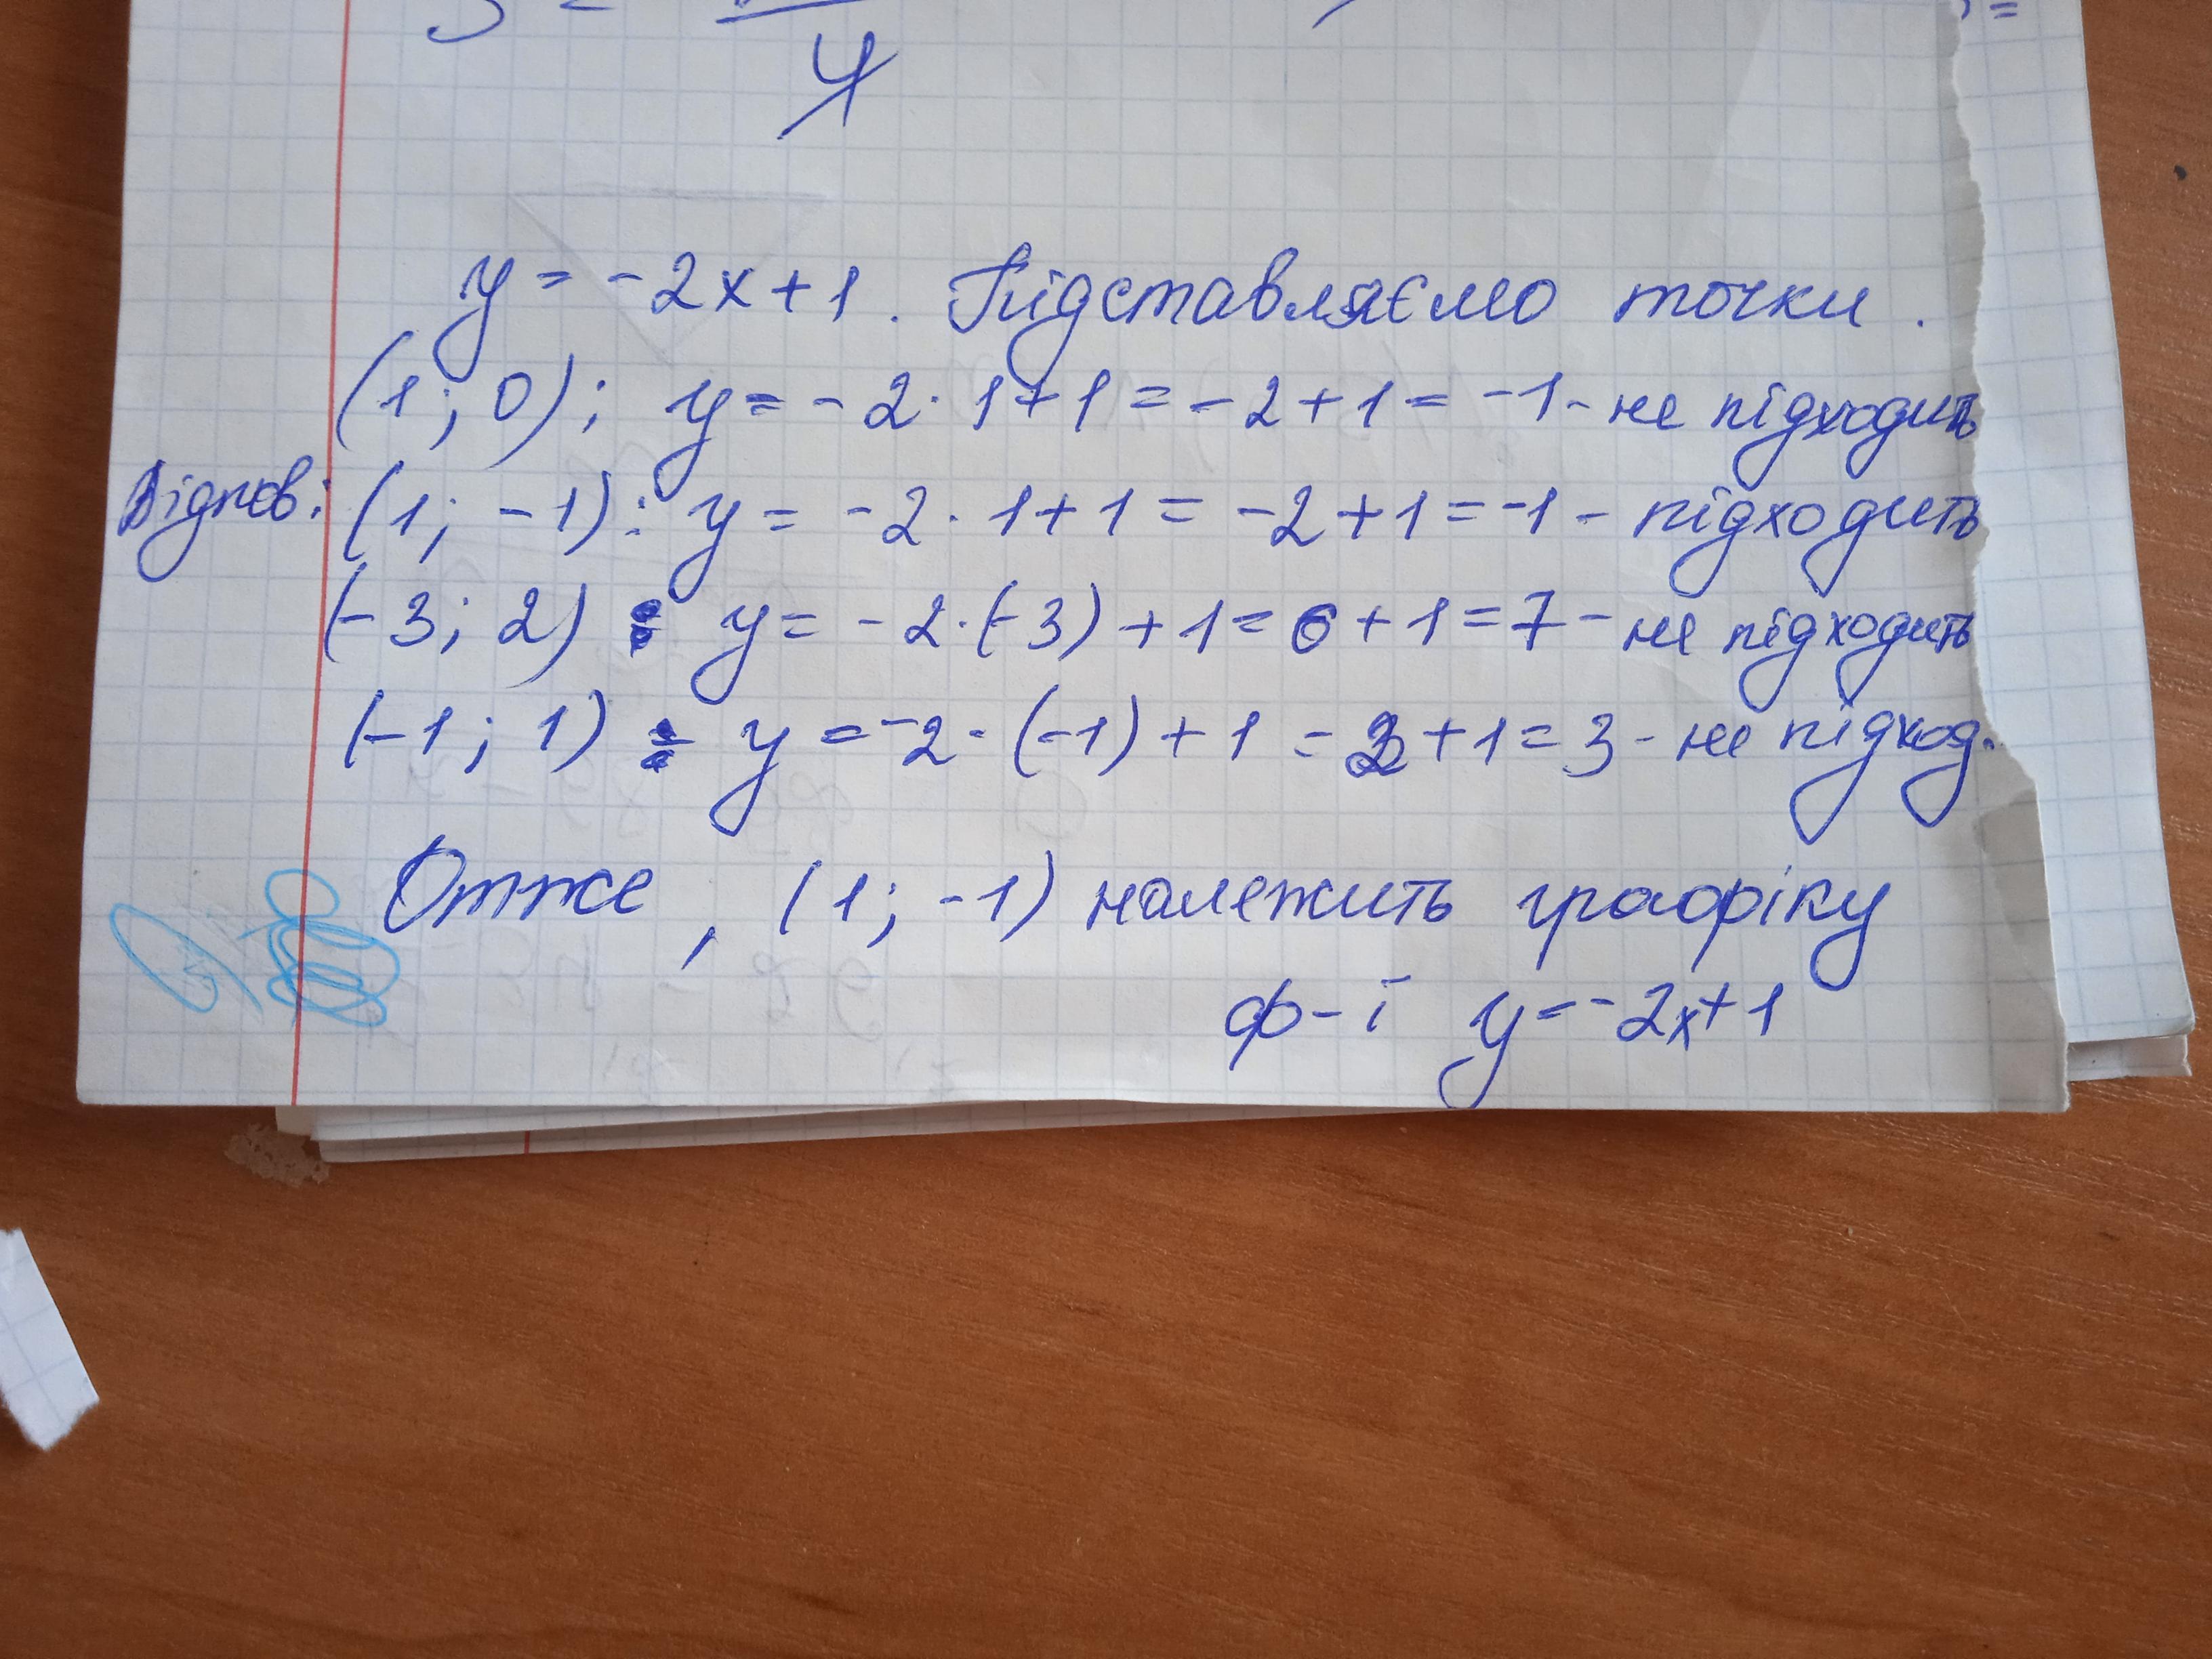 4
y = -2x+1. Підставляємо точки.
(1; 0); y = -2·1+1 = -2+1 = -1 - не підходить
Відпов: (1; -1): y = -2·1+1 = -2+1 = -1 - підходить
(-3; 2) : y = -2·(-3)+1 = 6+1 = 7 - не підходить
(-1; 1) : y = -2·(-1)+1 = 2+1 = 3 - не підход.
Отже, (1; -1) належить графіку
ф-ї y = -2x+1